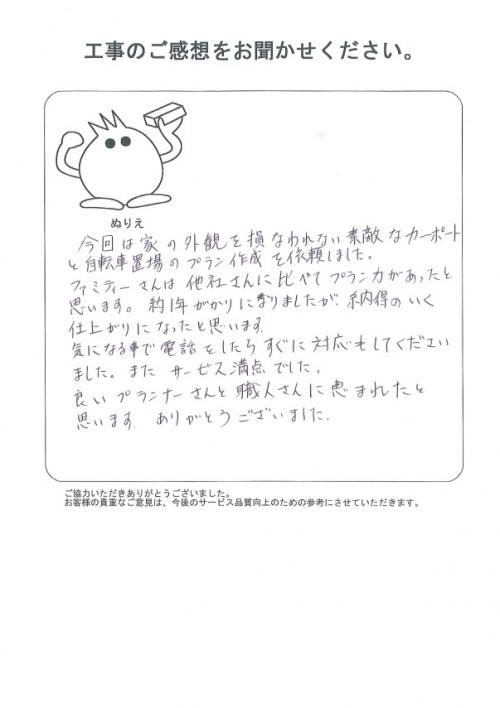 工事のご感想をお聞かせください。
ぬりえ
今回は家の外観を損なわれない素敵なカーポート
と自転車置場のプラン作成を依頼しました。
ファミティーさんは他社さんに比べてプラン力があったと
思います。約1年がかりになりましたが、納得のいく
仕上がりになったと思います。
気になる事で電話をしたらすぐに対応もしてください
ました。また サービス満点でした。
良いプランナーさんと職人さんに恵まれたと
思います。ありがとうございました。
ご協力いただきありがとうございました。
お客様の貴重なご意見は、今後のサービス品質向上のための参考にさせていただきます。